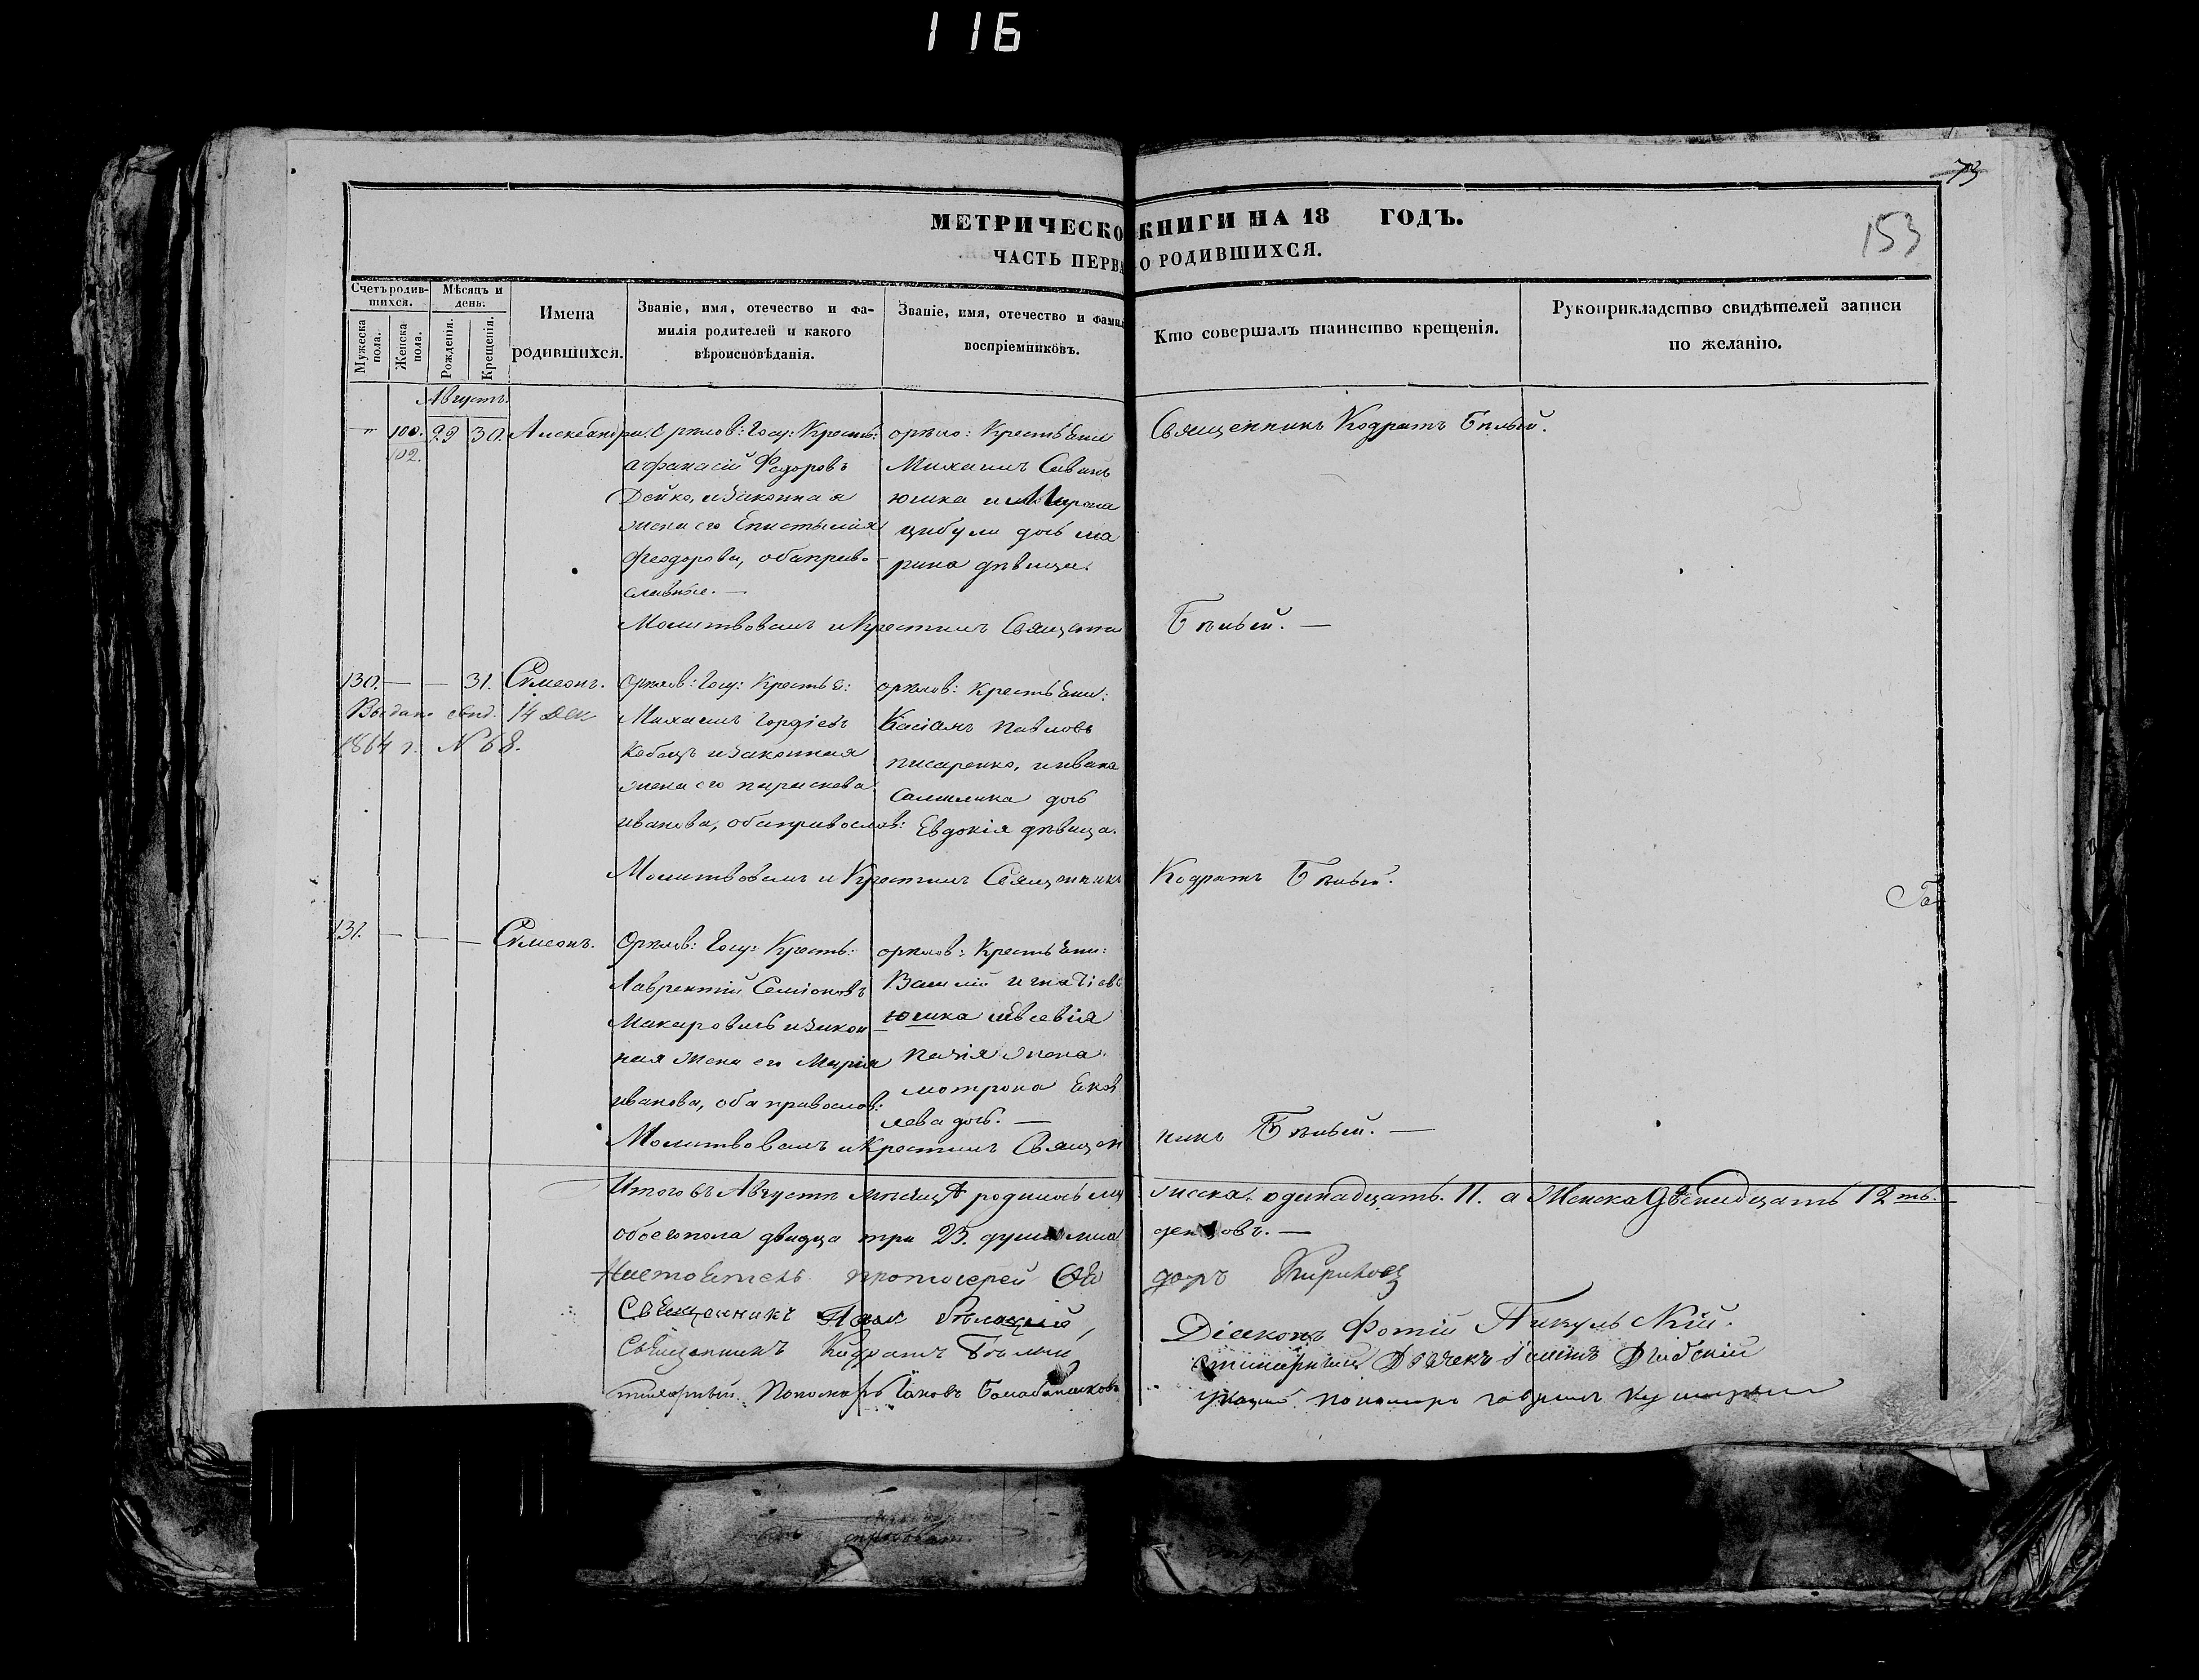 116
73
153
МЕТРИЧЕСКО КНИГИ НА 18 ГОДЪ.
ЧАСТЬ ПЕРВА О РОДИВШИХСЯ.
Счетъ родив-
шихся.
Мужеска пола.
Женска пола.
Мѣсяцъ и
день.
Рожденія.
Крещенія.
Имена
родившихся.
Званіе, имя, отечество и фа-
милія родителей и какого
вѣроисповѣданія.
Званіе, имя, отечество и фамил
воспріемниковъ.
Кто совершалъ таинство крещенія.
Рукоприкладство свидѣтелей записи
по желанію.
Августъ.
100. 29 30. Александра. Орѣлов: Госу: Кресть:
102.
Афанасій Федоровъ
Дейко, и законная
жена его Епистимія
Феодорова, оба право-
славные. —
орѣло: Крестьяни
Михаилъ Савинъ
юшка и Мирона
цибули дочь ма
рина дѣвица.
Священникъ Кодратъ Бѣлый.
Молитвовалъ и Крестилъ Священни
Бѣлый. —
130. — — 31. Сѵмеонъ.
Выдано свид. 14 Дек
1864 г. N 68.
Орѣлов: Госу: Крестья:
Михаилъ Гордіевъ
Кобецъ и законная
жена его параскева
иванова, оба православ:
орѣлов: Крестьяни:
Касіанъ Павловъ
писаренко, и ивана
дочь
Евдокія дѣвица.
Молитвовалъ и Крестилъ Священникъ
Кодратъ Бѣлый.
131. — — — Сѵмеонъ.
Орѣлов: Госу: Кресть:
Лаврентій Семіоновъ
Макаровичь и закон
ная жена его Марія
иванова, оба православ:
орѣлов: Крестьяни:
Василій игнатіевъ
юшка
жена
мотрона Яков
лева дочь. —
Молитвовалъ и Крестилъ Священ
никъ Бѣлый. —
Итого въ Августѣ мѣсяцѣ родилось му
жеска. одинадцать. 11. а Женска двенадцать 12ть.
обоего пола двадца три 23. душ мла
денцовъ. —
Настоятель протоіерей Фео
доръ
Священникъ
Священникъ Кодратъ Бѣлый
Пономарь Іаковъ
Діаконъ Фотій Пикульскій.
Дьячекъ
пономарь гавріилъ